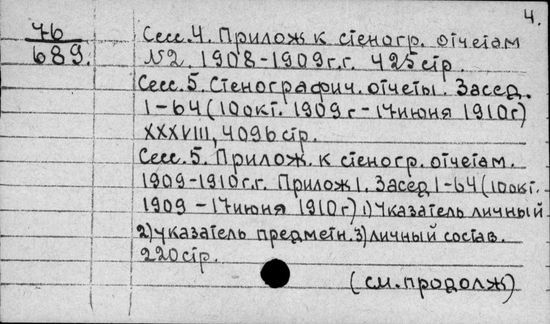 4.
76
689.
Сесс. 4. Прилож к стеногр. отчетам
№2. 1908-1909г.г. 425 стр.
Сесс. 5. Стенографич. отчеты. Засед.
1-64 (10 окт. 1909г - 17 июня 1910г)
XXXVIII, 4096 стр.
Сесс. 5. Прилож. к стеногр. отчетам.
1909-1910г.г. Прилож 1. Засед 1-64 (10 окт.
1909 - 17 июня 1910г) 1) Указатель личный
2) указатель предметн. 3) личный состав.
220 стр.
(см. продолж)